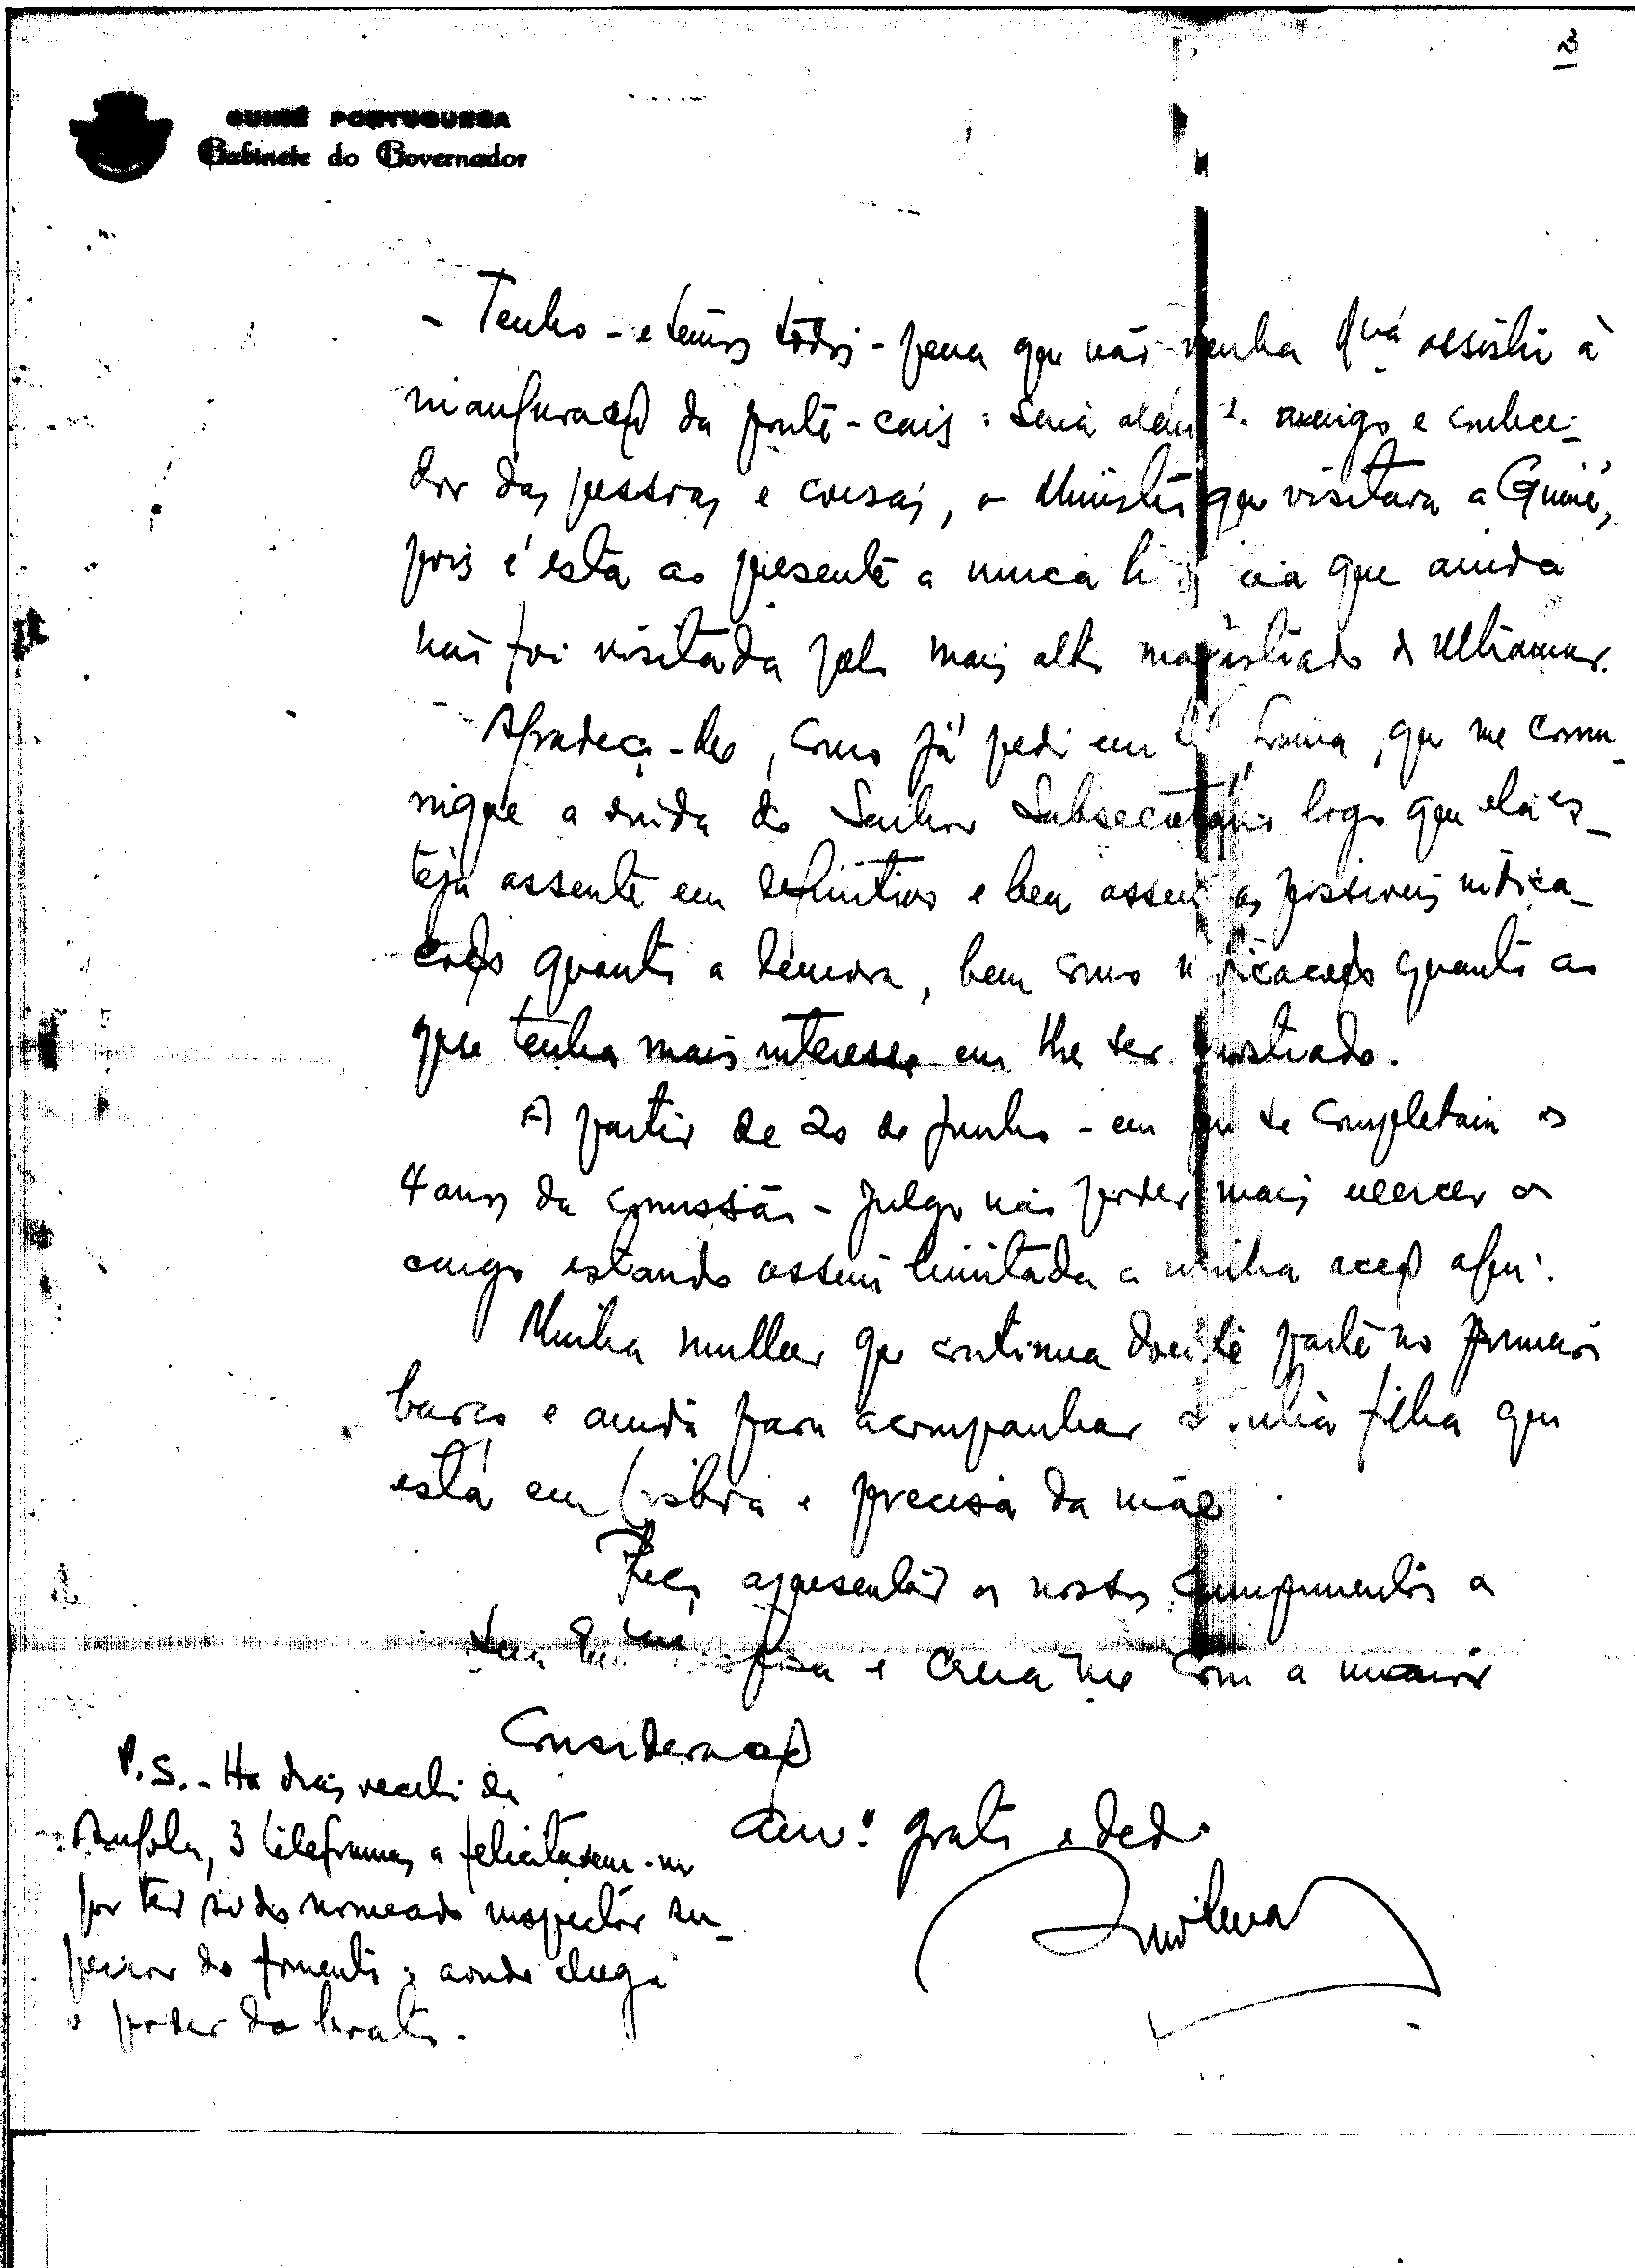 3
GUINÉ PORTUGUESA
Gabinete do Governador
- Tenho - e temos todos - pena que não venha assistir à
inauguração da ponte-cais: seria além amigo e conhece-
dor das pessoas e coisas, o Ministro que visitara a Guiné,
pois é esta ao presente a única que ainda
não foi visitada pelo mais alto magistrado do Ultramar.
Agradeço-lhe, como já pedi em, que me comu-
nique a vinda do Senhor Subsecretário logo que ela es-
teja assente em definitivo e bem assim as possíveis indica-
ções quanto a demora, bem como indicações quanto ao
que tenha mais interesse em lhe ser mostrado.
A partir de 20 de Junho - em que se completam os
4 anos da comissão - julgo não poder mais exercer o
cargo estando assim limitada a minha acção aqui.
Minha mulher que continua doente parte no primeiro
barco e ainda para acompanhar a minha filha que
está em Lisboa e precisa da mãe.
Peço apresentar os nossos cumprimentos a
sua Exma esposa e creia-me com a maior
Consideração
Am.º grato e ded.º
P.S. - Ha dias recebi de
Angola, 3 telegramas a felicitarem-me
por ter sido nomeado inspector su-
perior do fomento; aonde chega
o poder do boato.